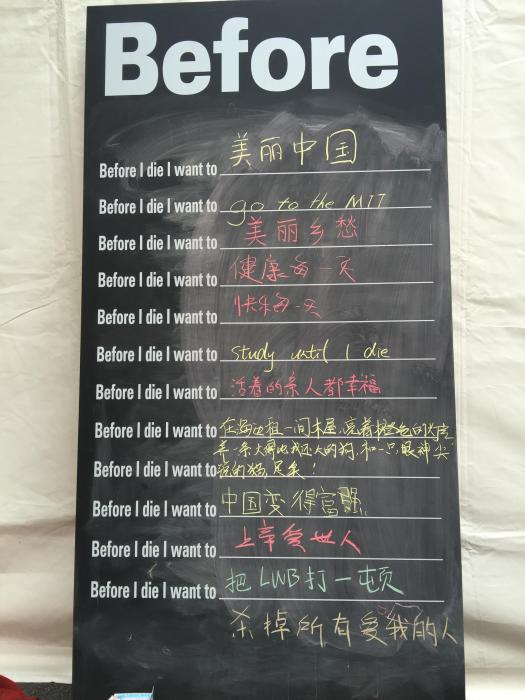 Before
Before I die I want to 美丽中国
Before I die I want to go to the MIT
Before I die I want to 美丽乡愁
Before I die I want to 健康每一天
Before I die I want to 快乐每一天
Before I die I want to study until I die
Before I die I want to 活着的亲人都幸福
Before I die I want to 在海边租一间木屋,亮着橙色的灯
养一条大得比我还大的狗,和一只眼神尖
Before I die I want to 锐的猫,足矣!
Before I die I want to 中国变得富强
Before I die I want to 上帝爱世人
Before I die I want to 把LWB打一顿
杀掉所有爱我的人